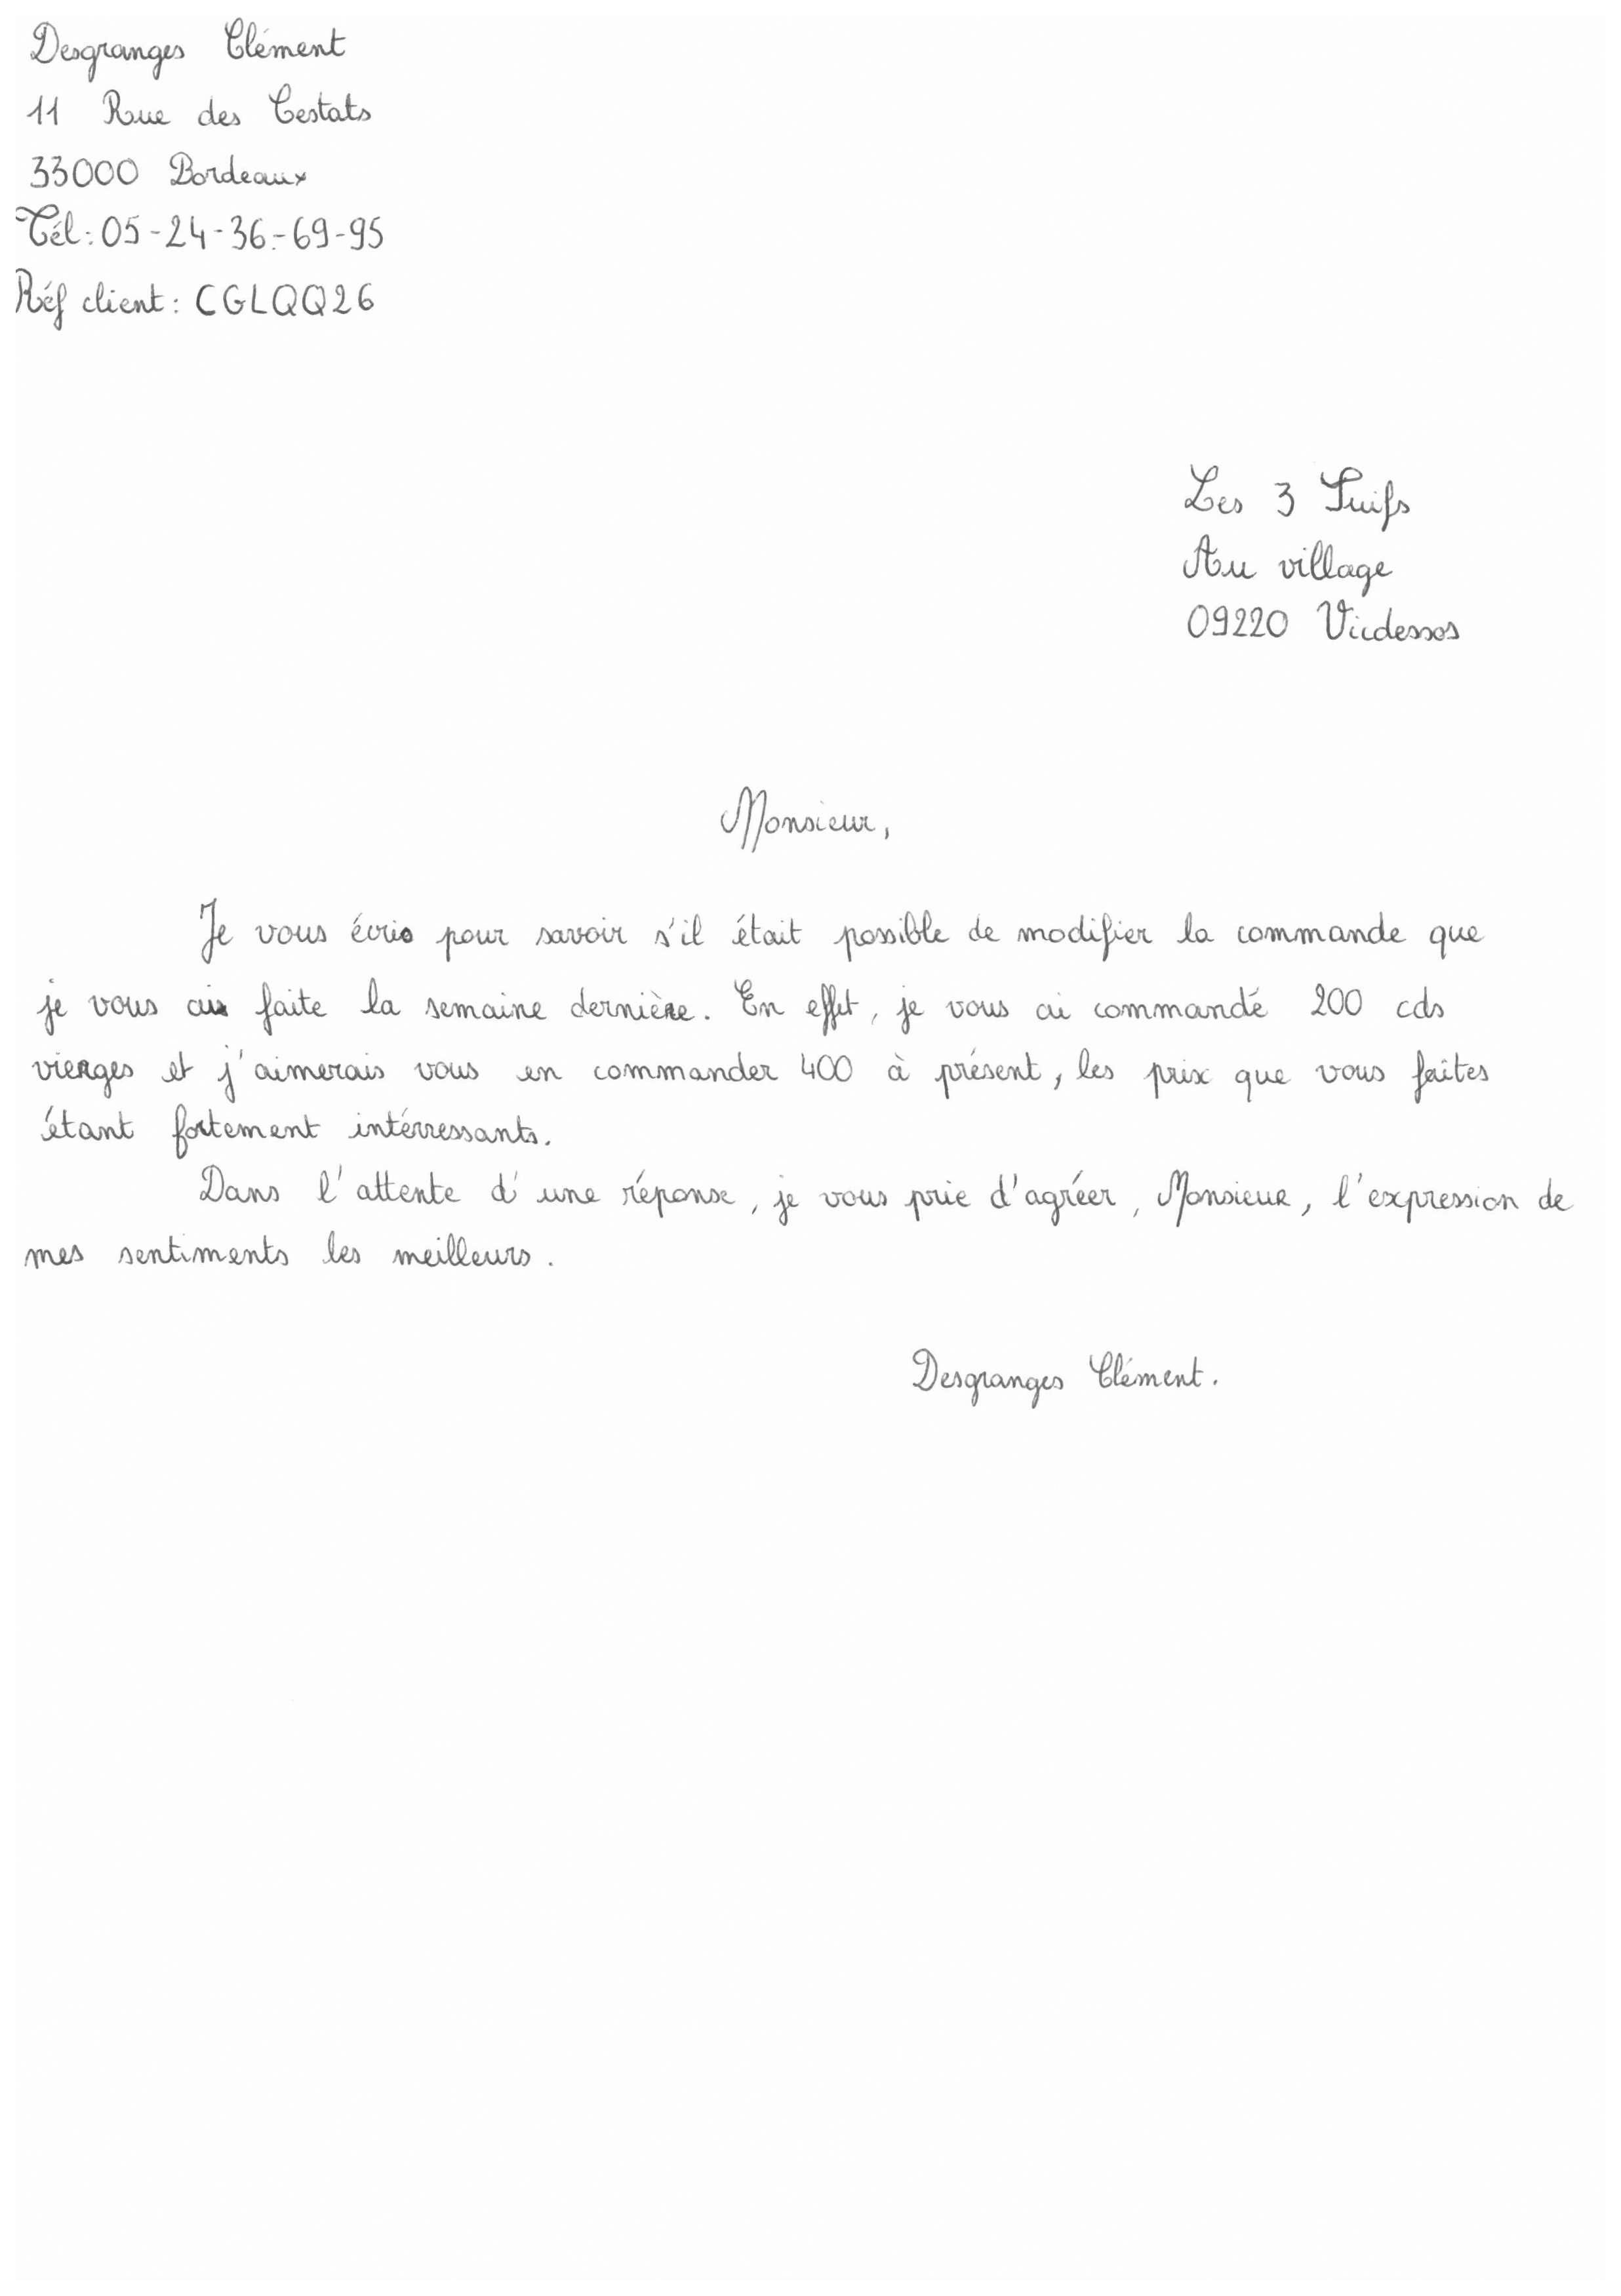 Desgranges Clément
11 Rue des Cestats
33000 Bordeaux
Tél : 05-24-36-69-95
Réf client : CGLQQ26
Les 3 Suifs
Au village
09220 Vicdessos
Monsieur,
Je vous écris pour savoir s'il était possible de modifier la commande que
je vous ai faite la semaine dernière. En effet, je vous ai commandé 200 cds
vierges et j'aimerais vous en commander 400 à présent, les prix que vous faîtes
étant fortement intérressants.
Dans l'attente d'une réponse, je vous prie d'agréer, Monsieur, l'expression de
mes sentiments les meilleurs.
Desgranges Clément.